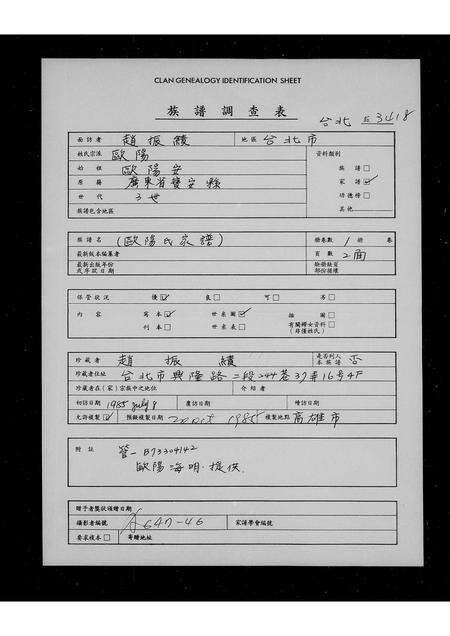 CLAN GENEALOGY IDENTIFICATION SHEET
族譜調查表
台北 5 3418
面訪者 趙振績 地區 台北市
姓氏宗派 歐陽 資料類別
始祖 歐陽安 族譜 □
原籍 廣東省寶安縣 家譜 ☑
世代 3世 功德榜 □
族譜包含地區 其他
族譜名 (歐陽氏家譜) 冊卷數 1 冊 卷
最新版本編纂者 頁數 2面
最新出版年份或序跋日期 缺頁部份損壞
保管狀況 優 ☑ 良 □ 可 □ 劣 □
內容 寫本 ☑ 世系圖 ☑ 插圖 □
刊本 □ 世系表 □ 有關婦女資料 □ (非僅姓氏)
珍藏者 趙振績 是否列入本族譜 否
珍藏者住址 台北市興隆路二段244巷37弄16号4F
珍藏者在(家)宗族中之地位 介紹者
初訪日期 1985 July 9 覆訪日期 續訪日期
允許複製 ☑ 預擬複製日期 20 oct 1985 複製地點 高雄市
附註 營一B73304142
歐陽海明.提供.
贈予者獎狀頒贈日期
攝影者編號 A647-46 家譜學會編號
要求複本 □ 寄贈地址